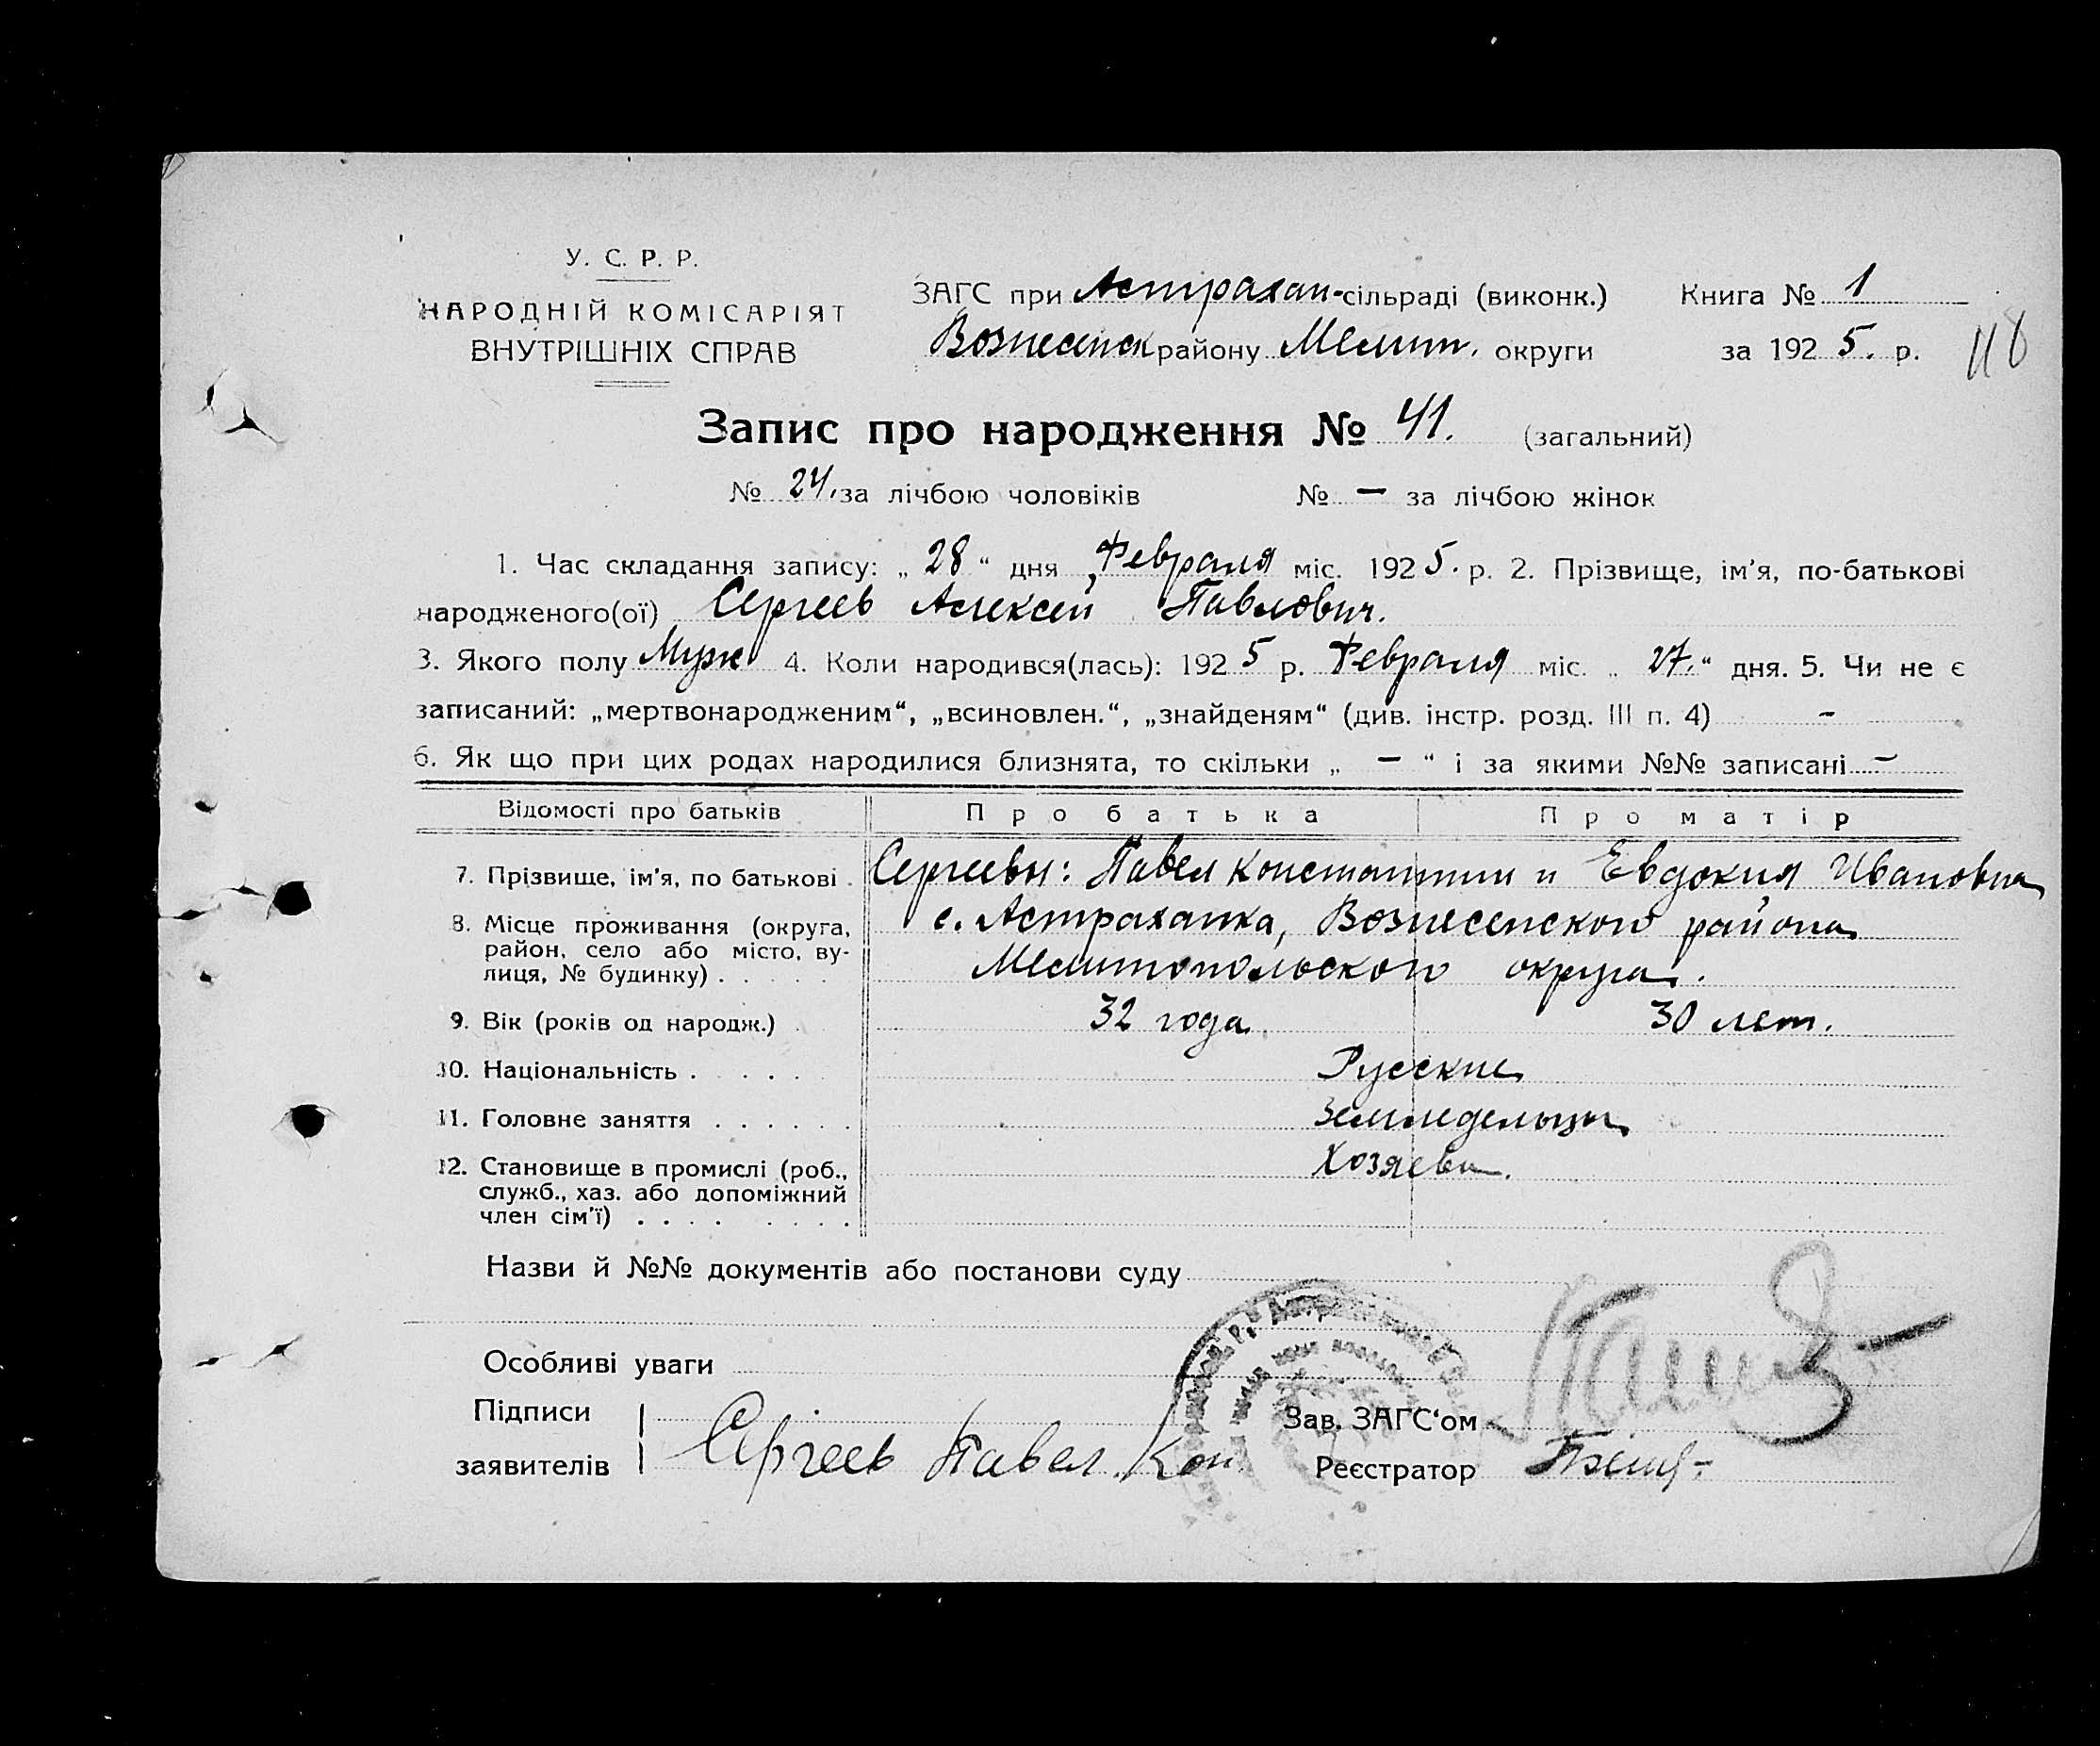 У. С. Р. Р.
НАРОДНІЙ КОМІСАРІЯТ
ВНУТРІШНІХ СПРАВ
ЗАГС при Астрахан-сільраді (виконк.)
Вознесенск району Мелит. округи
Книга № 1
за 1925. р.
118
Запис про народження № 41. (загальний)
№ 24. за лічбою чоловіків № — за лічбою жінок
1. Час складання запису: „ 28 “ дня Февраля міс. 1925. р. 2. Прізвище, ім’я, по-батькові
народженого(ої) Сергеев Алексей Павлович.
3. Якого полу Муж 4. Коли народився(лась): 1925 р. Февраля міс. „ 27. “ дня. 5. Чи не є
записаний: „мертвонародженим“, „всиновлен.“, „знайденям“ (див. інстр. розд. III п. 4) -
6. Як що при цих родах народилися близнята, то скільки „ — “ і за якими №№ записані —
Відомості про батьків Про батька Про матір
7. Прізвище, ім’я, по батькові . Сергеевы: Павел Константин и Евдокия Ивановна
8. Місце проживання (округа, с. Астраханка, Вознесенского района
район, село або місто, ву-
лиця, № будинку) . . . . . Мелитопольского округа.
9. Вік (років од народж.) . 32 года. 30 лет.
10. Національність . . . . . Русские
11. Головне заняття . . . . . . Земледельцы
12. Становище в промислі (роб., Хозяева.
служб., хаз. або допоміжний
член сім’ї) . . . . . . . .
Назви й №№ документів або постанови суду
Особливі уваги
Підписи
заявителів Сергеев Павел Кон.
Зав. ЗАГС‘ом
Реєстратор